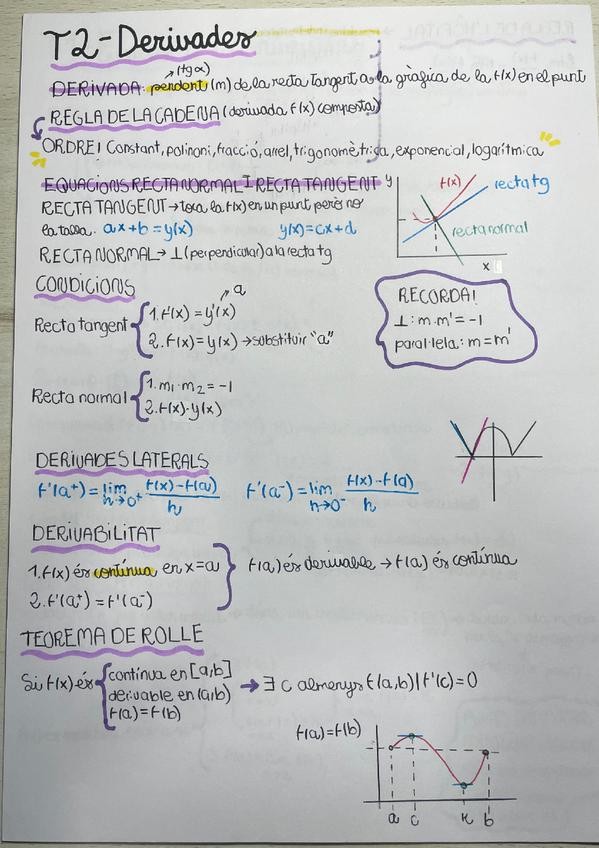 T2-Derivades
(tg α)
DERIVADA: pendent (m) de la recta tangent a la gràfica de la f(x) en el punt
REGLA DE LA CADENA (derivada f(x) composta)
ORDRE! Constant, polinomi, fracció, arrel, trigonomètrica, exponencial, logarítmica
EQUACIONS RECTA NORMAL I RECTA TANGENT
RECTA TANGENT → toca la f(x) en un punt però no
la talla. ax+b=y(x) y(x)=cx+d
RECTA NORMAL → ⊥ (perpendicular) a la recta tg
y
f(x)
recta tg
recta normal
x
CONDICIONS
Recta tangent { 1. f'(x)=y'(x) ↗ a
2. f(x)=y(x) → substituir "a"
RECORDA!
⊥: m·m'=-1
paral·lela: m=m'
Recta normal { 1. m₁·m₂=-1
2. f(x)·y(x)
DERIVADES LATERALS
f'(a⁺)= lim h→0⁺ f(x)-f(a) / h f'(a⁻)= lim h→0⁻ f(x)-f(a) / h
DERIVABILITAT
1. f(x) és contínua en x=a } f(a) és derivable → f(a) és contínua
2. f'(a⁺)=f'(a⁻)
TEOREMA DE ROLLE
Si f(x) és { contínua en [a,b]
derivable en (a,b) → ∃ c almenys ∈(a,b) | f'(c)=0
f(a)=f(b)
f(a)=f(b)
a c k b